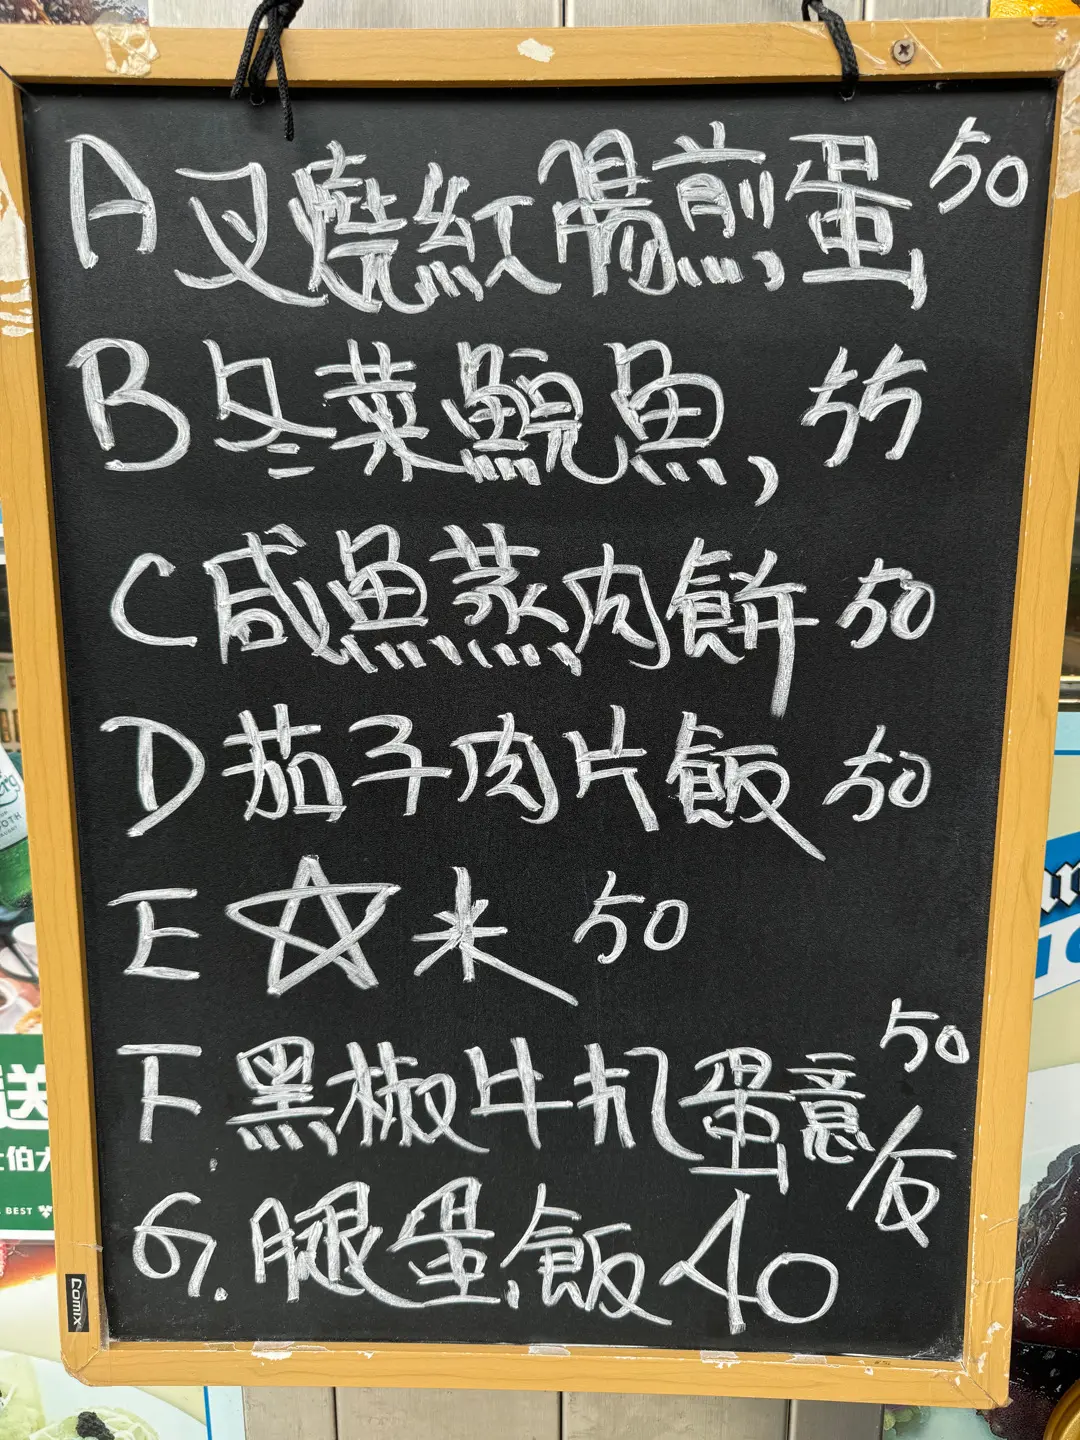 A 叉燒紅腸煎蛋 50
B 冬菜鯇魚, 55
C 咸魚蒸肉餅 50
D 茄子肉片飯 50
E ☆米 50
F 黑椒牛扒蛋意反 50
G. 腿蛋飯 40
Comix
送
BEST